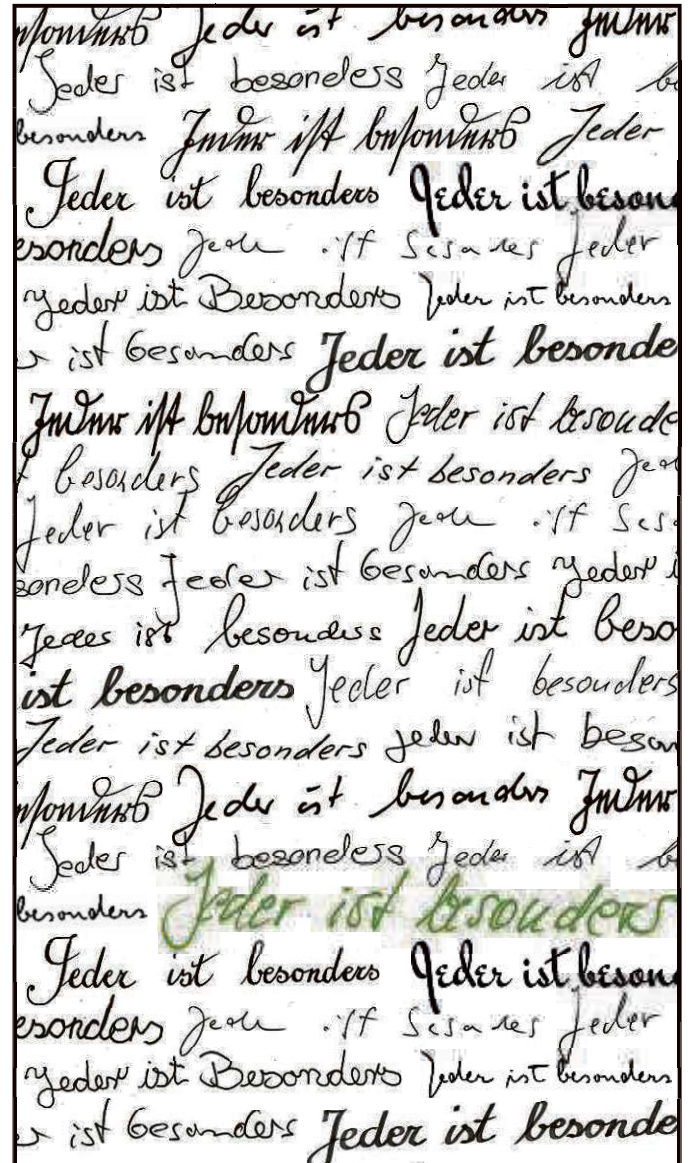 esonders Jeder ist besonders Jeder
Jeder ist besoneless Jeder ist be
besonders Jeder ist besonders Jeder
Jeder ist besonders Jeder ist beson
esonders Jeder ist besonders Jeder
Jeder ist Besonders Jeder ist besonders
r ist besonders Jeder ist besonde
Jeder ist besonders Jeder ist besonde
t besonders Jeder ist besonders Jeder
Jeder ist besonders Jeder ist beso
soneless Jeder ist besonders Jeder i
Jedes ist besonders Jeder ist beso
ist besonders Jeder ist besonders
Jeder ist besonders jeder ist beson
esonders Jeder ist besonders Jeder
Jeder ist besoneless Jeder ist b
besonders Jeder ist besonders
Jeder ist besonders Jeder ist beson
esonders Jeder ist besonders Jeder
Jeder ist Besonders Jeder ist besonders
r ist besonders Jeder ist besonde